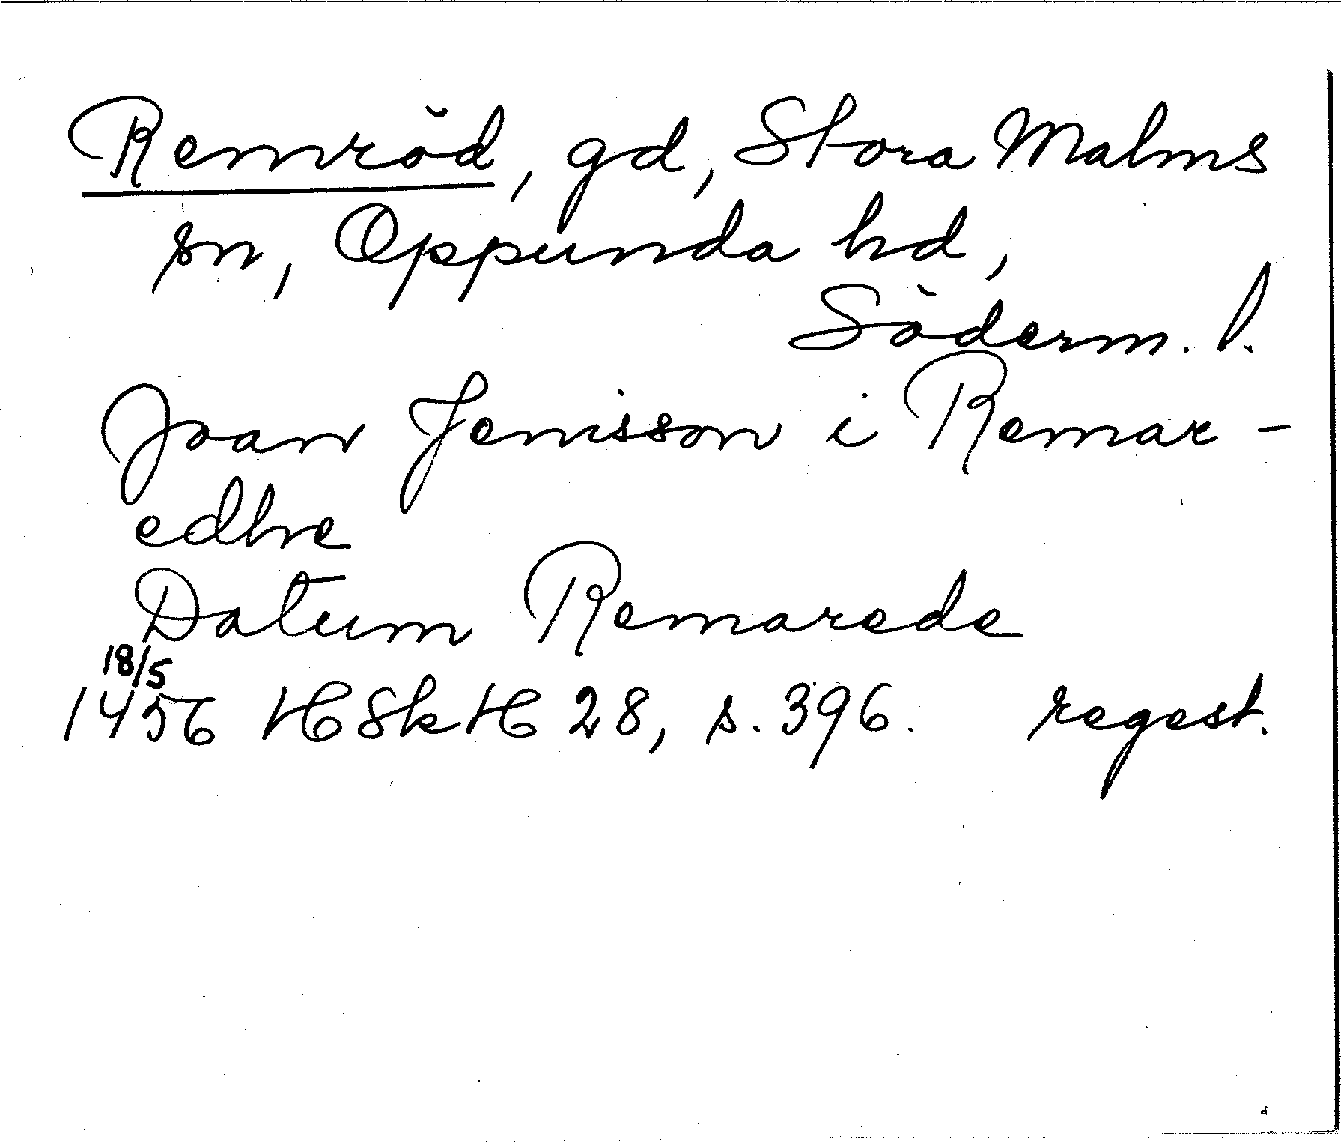 Remröd, gd, Stora Malms
sn, Oppunda hd,
Söderm. l.
Joan Jenisson i Remar-
edhe
Datum Remarede
18/5
1456 HSkH 28, s. 396. regest.